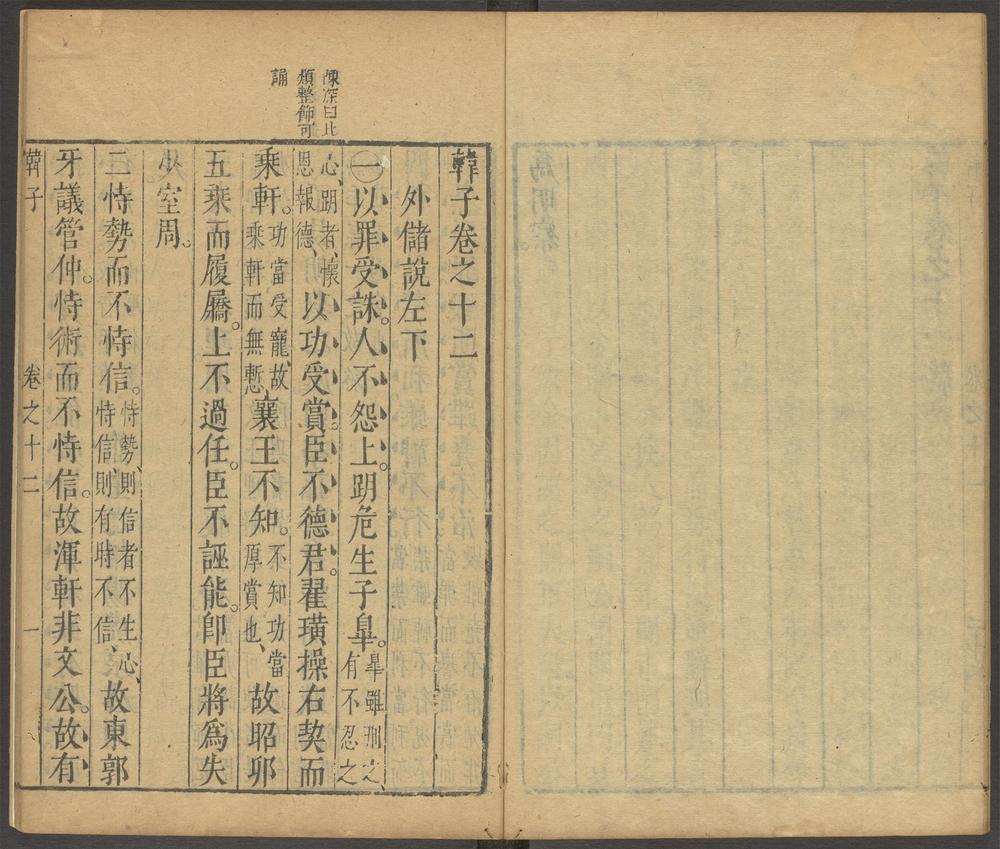 陳深曰此
類整飾可
誦
韓子卷之十二
外儲說左下
㊀以罪受誅。人不怨上。跀危生子臯。臯雖刑之有不忍之
心、跀者懷思報德、以功受賞。臣不德君。翟璜操右契而
乘軒。功當受寵、故乘軒而無慙、襄王不知。不知功當厚賞也、故昭卯
五乘而履屩。上不過任。臣不誣能。卽臣將爲失
少室周。
二恃勢而不恃信。恃勢、則信者不生心、恃信則有時不信、故東郭
牙議管仲。恃術而不恃信。故渾軒非文公。故有
韓子 卷之十二 一